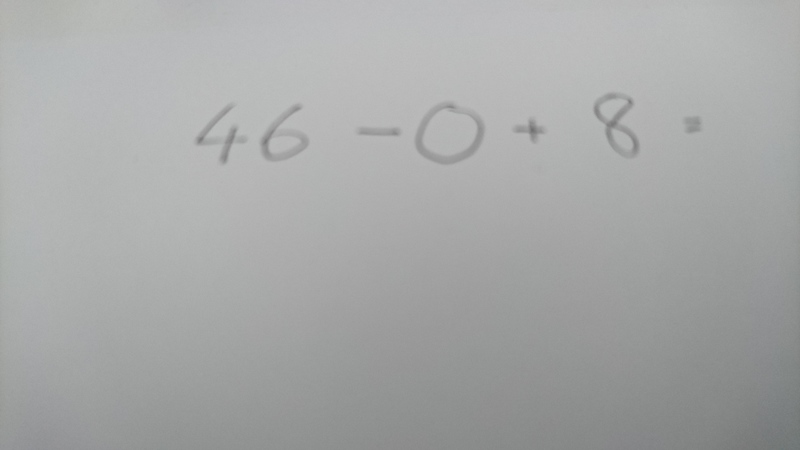 46 - 0 + 8 =